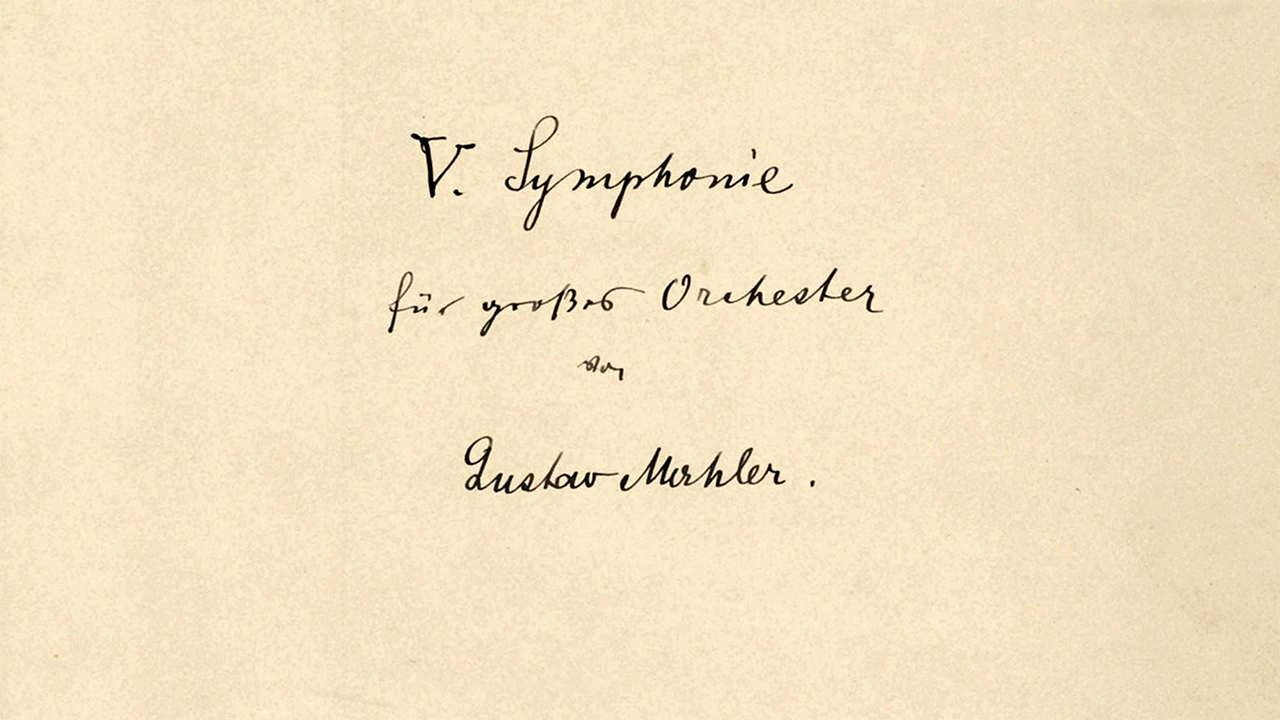 V. Symphonie
für großes Orchester
von
Gustav Mahler.